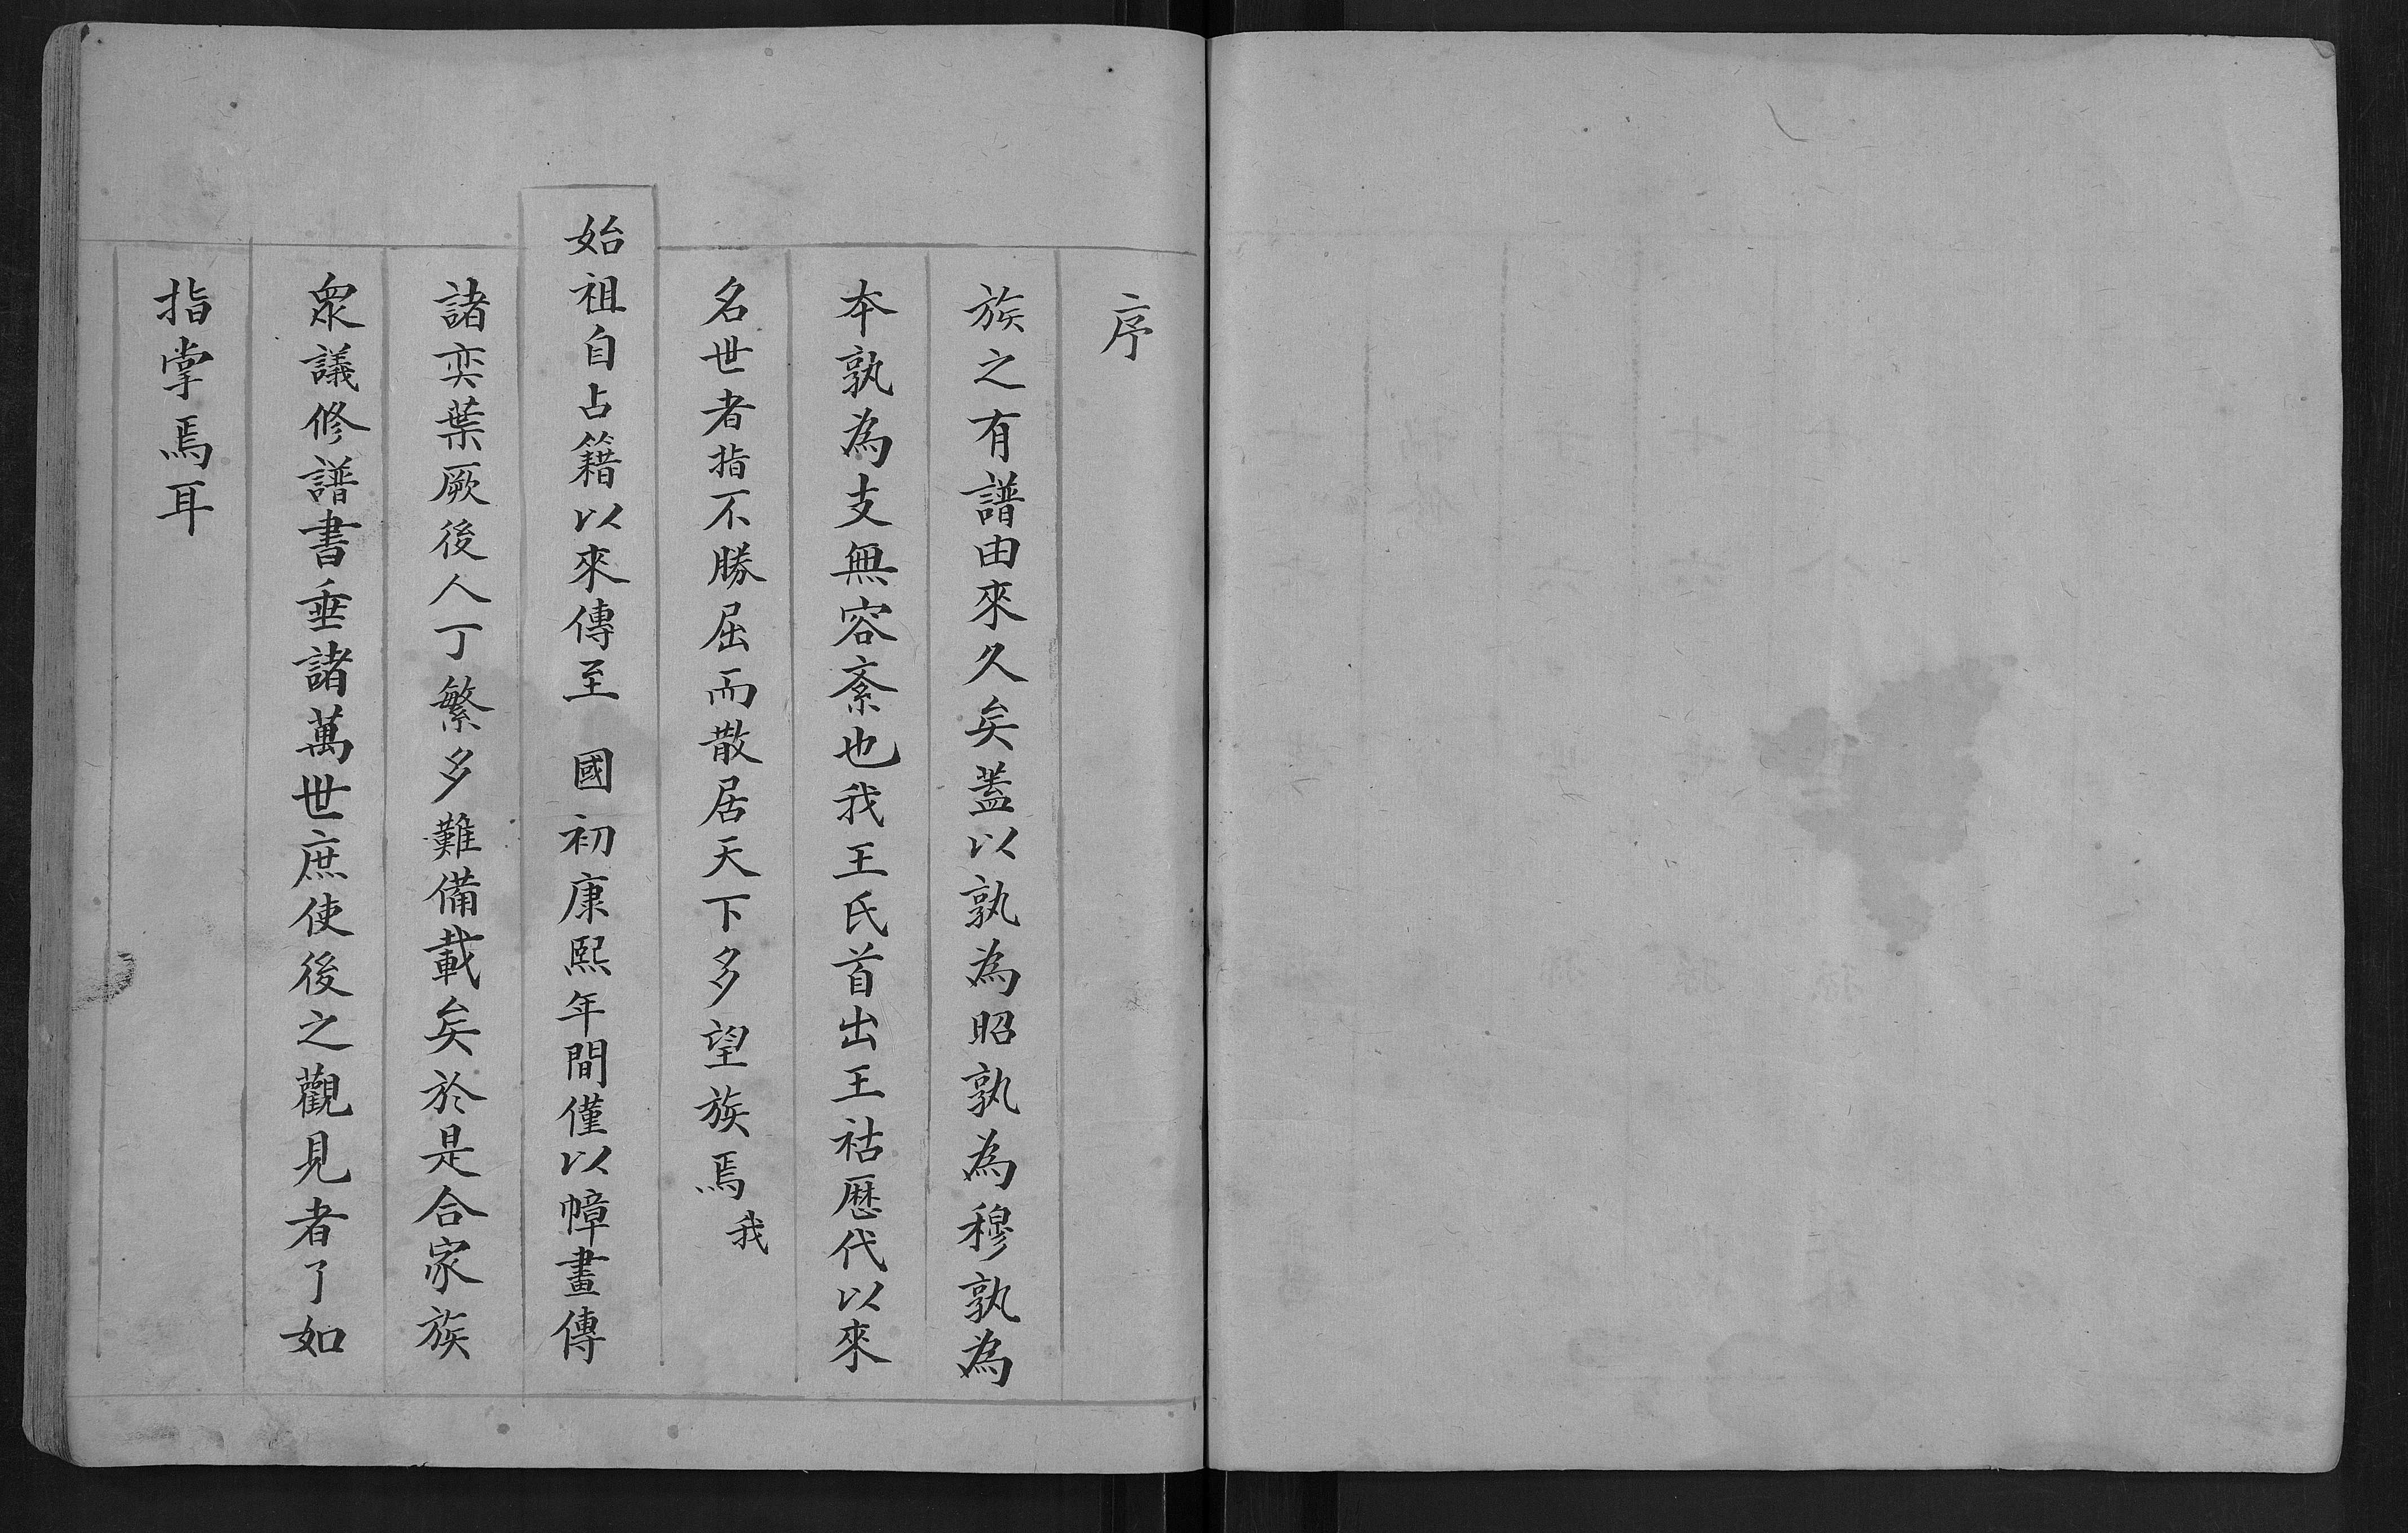 序
族之有譜由來久矣蓋以孰為昭孰為穆孰為
本孰為支無容紊也我王氏首出王祜歷代以來
名世者指不勝屈而散居天下多望族焉我
始祖自占籍以來傳至 國初康熙年間僅以幛畫傳
諸奕葉厥後人丁繁多難備載矣於是合家族
衆議修譜書垂諸萬世庶使後之觀見者了如
指掌焉耳